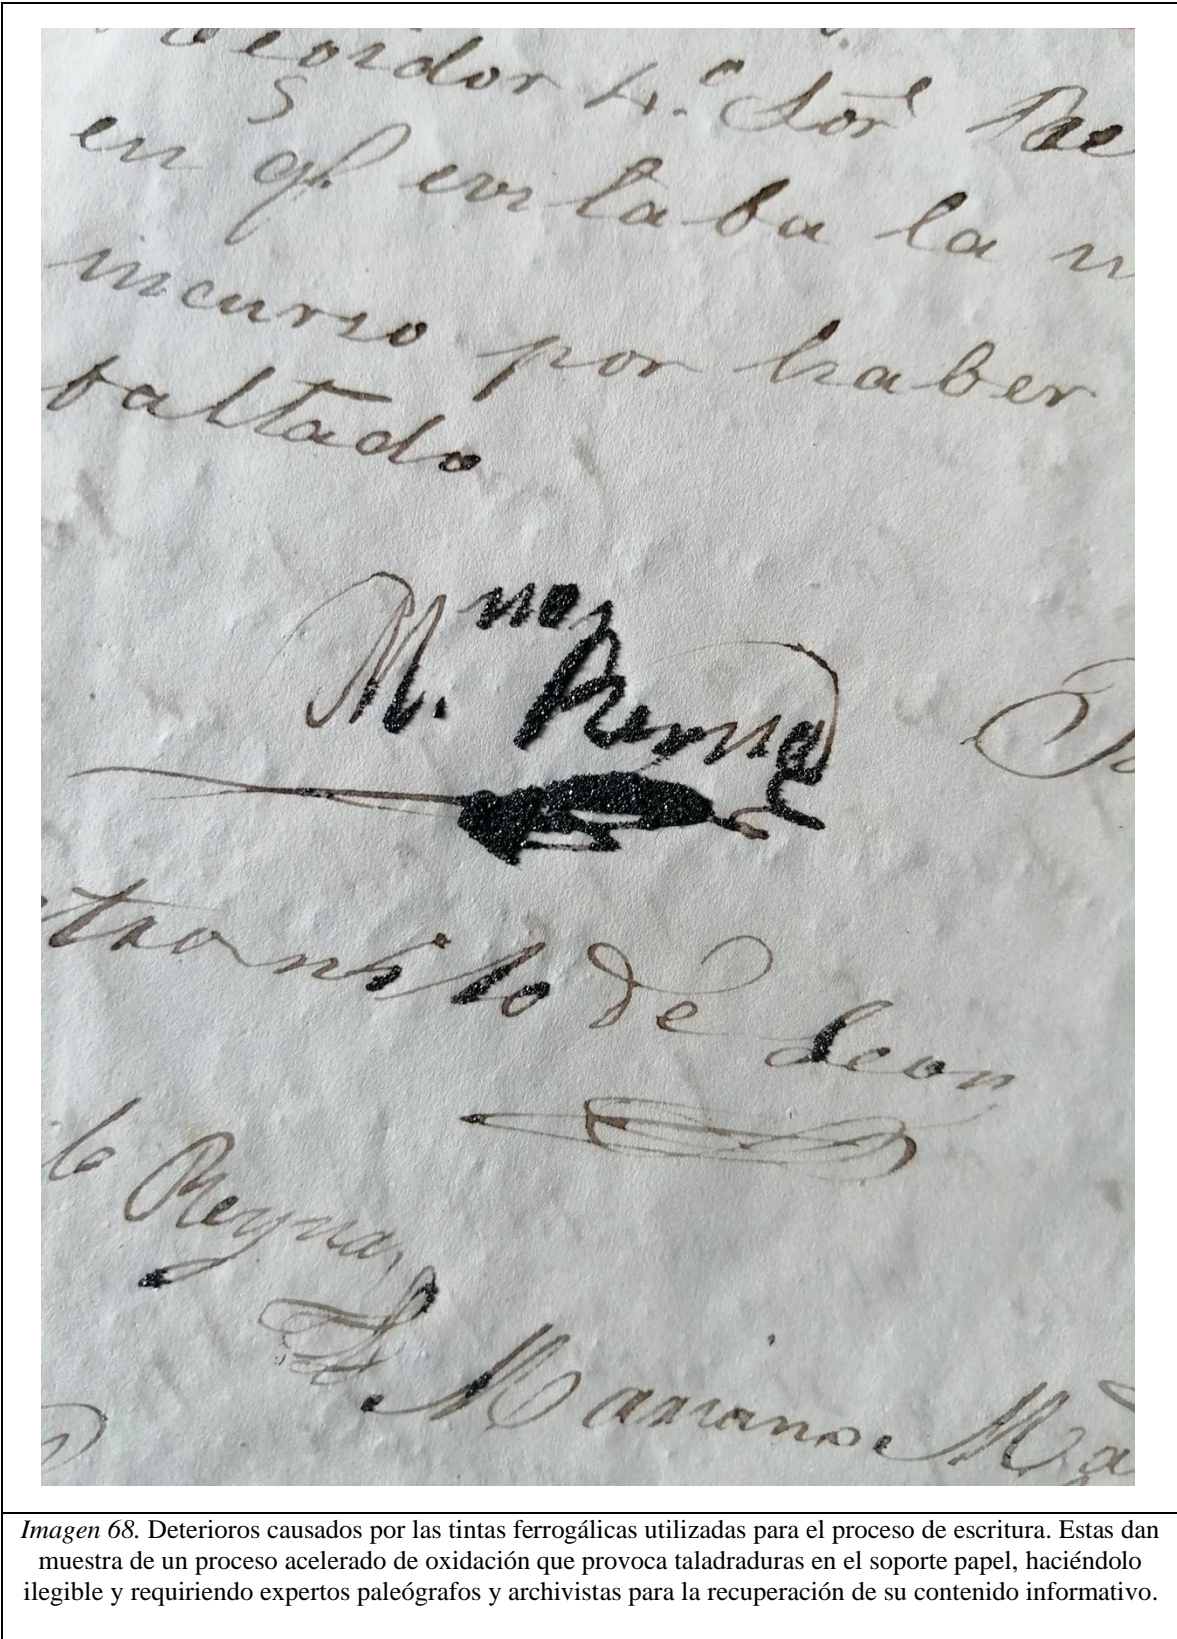 Regidor 4.º Sor
en q.l estaba la
incurso por haber
faltado
M.
Reyna
de Leon
Reyna
Mariano
Imagen 68. Deterioros causados por las tintas ferrogálicas utilizadas para el proceso de escritura. Estas dan
muestra de un proceso acelerado de oxidación que provoca taladraduras en el soporte papel, haciéndolo
ilegible y requiriendo expertos paleógrafos y archivistas para la recuperación de su contenido informativo.